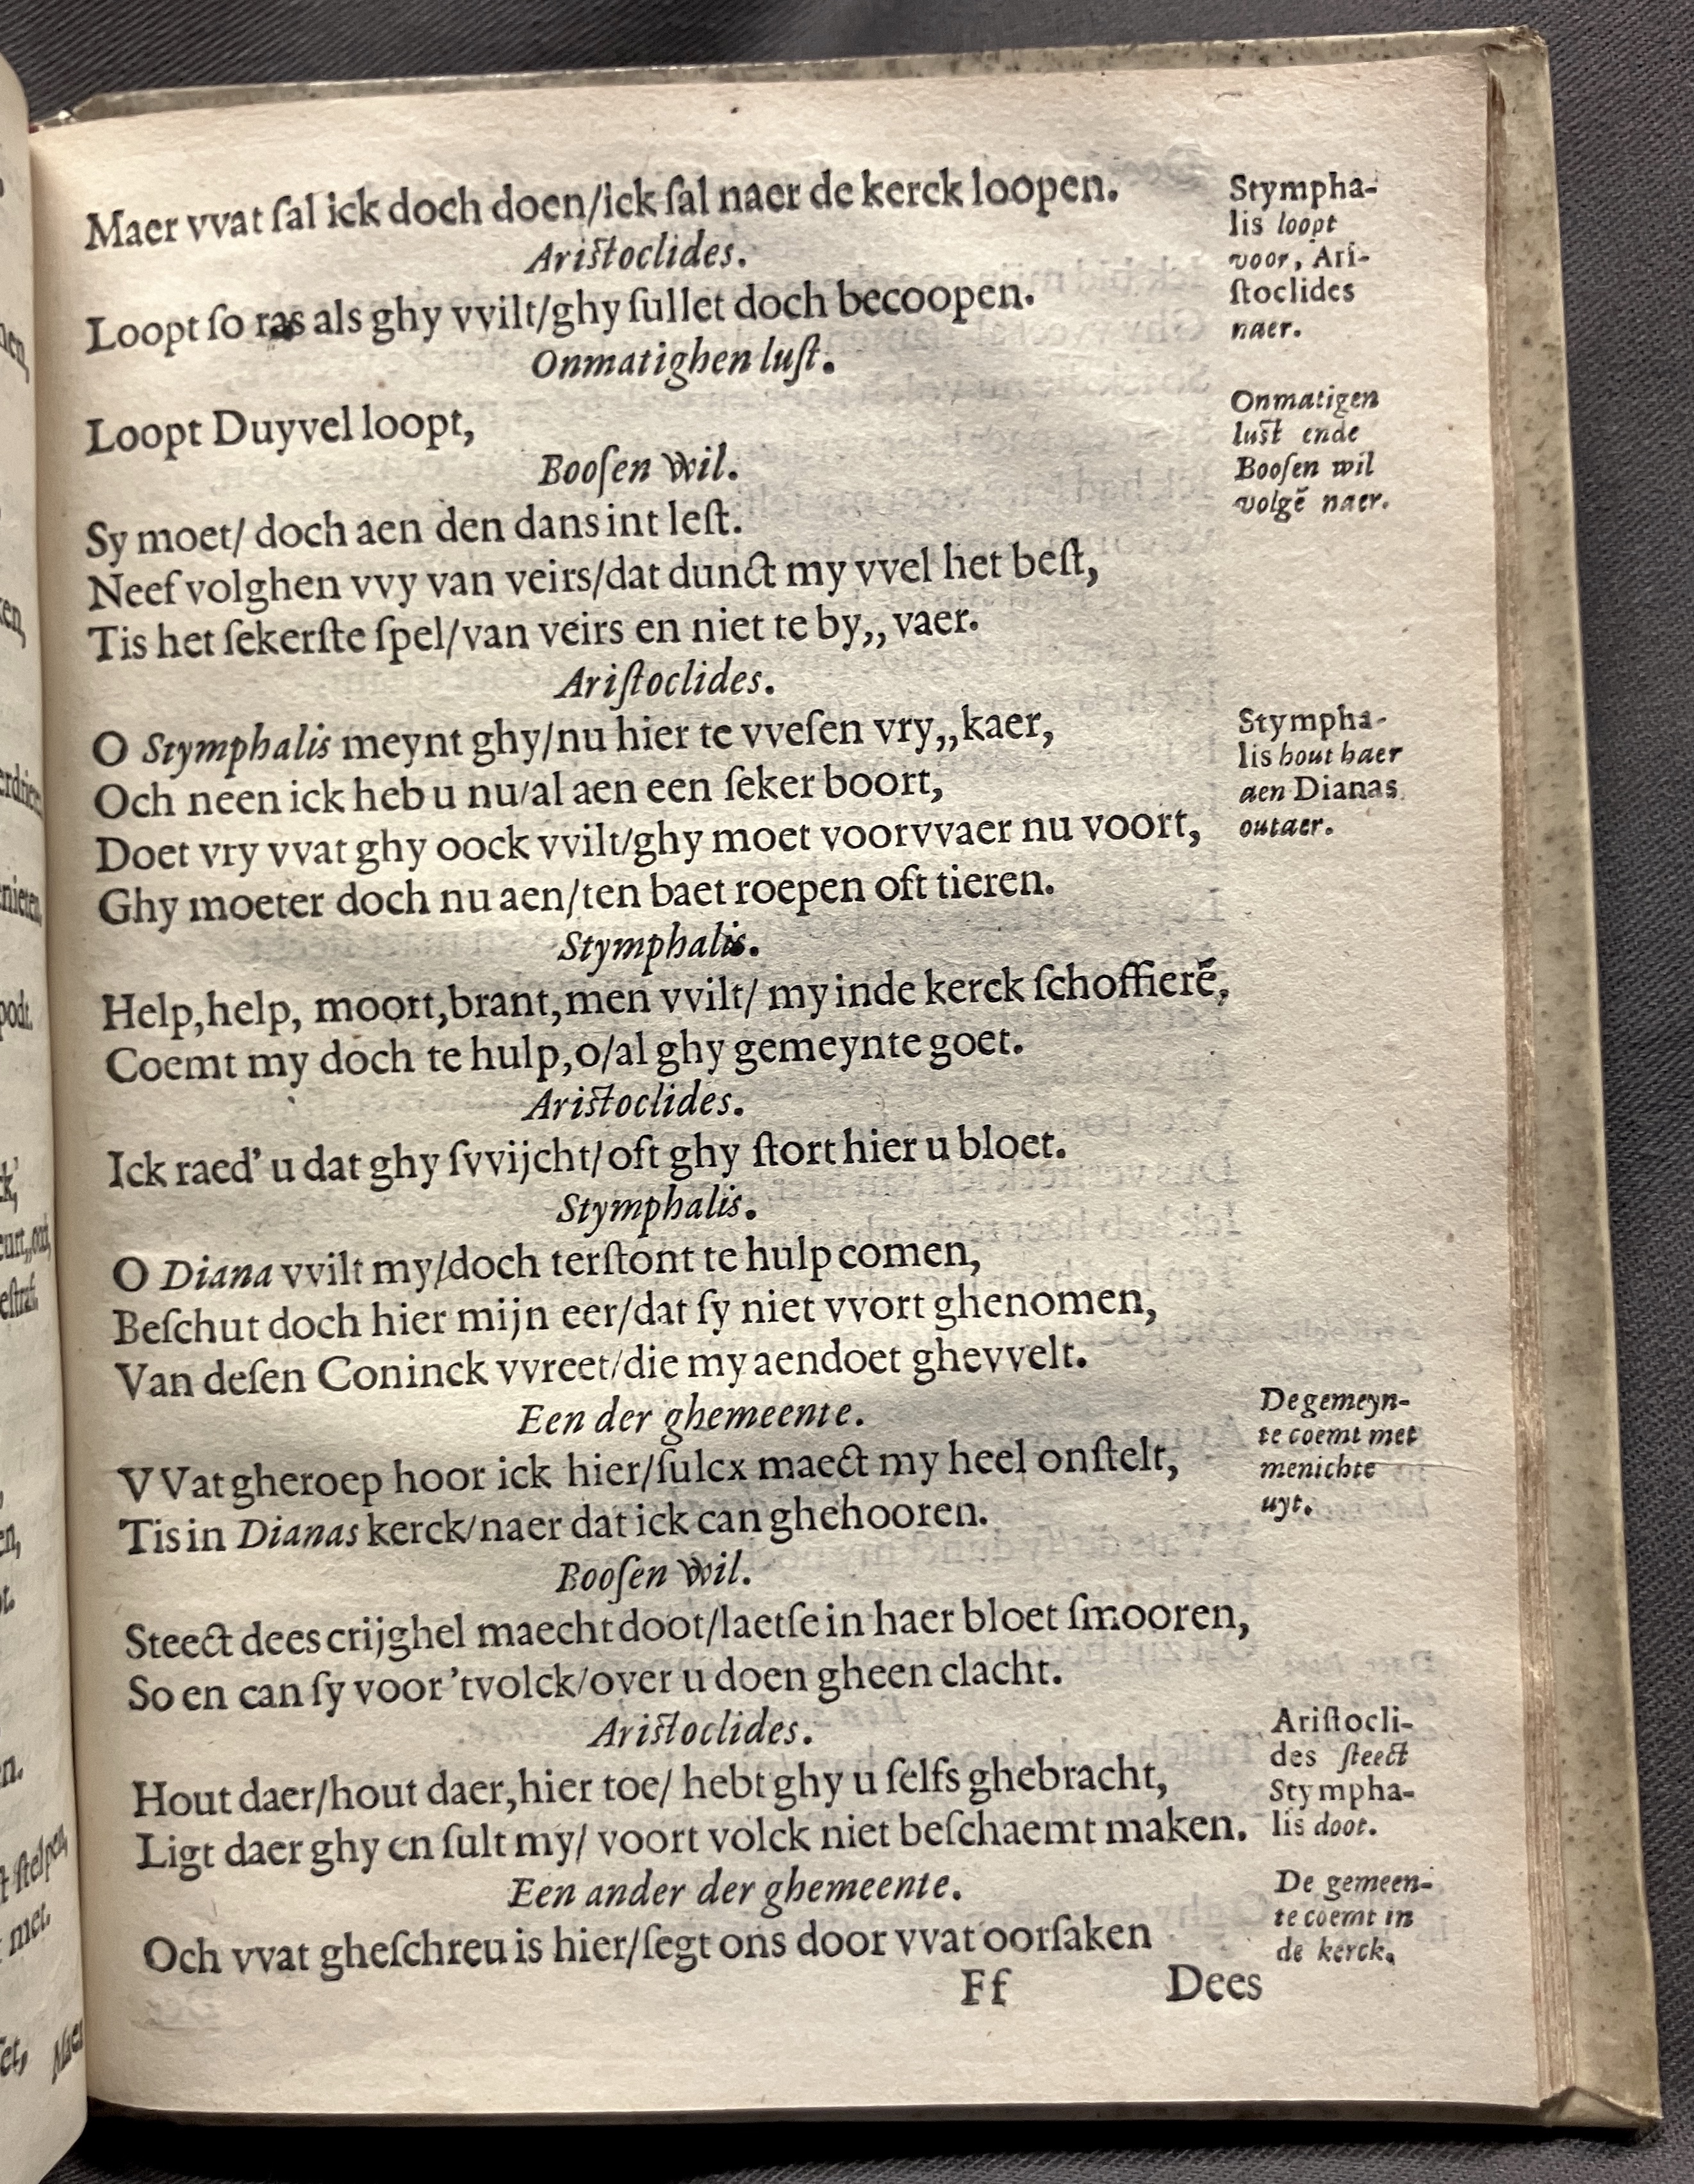 Maer vvat ſal ick doch doen/ick ſal naer de kerck loopen.
Stympha-
lis loopt
voor, Ari-
ſtoclides
naer.
Ariſtoclides.
Loopt ſo ras als ghy vvilt/ghy ſullet doch becoopen.
Onmatighen luſt.
Loopt Duyvel loopt,
Onmatigen
luſt ende
Booſen wil
volgẽ naer.
Booſen Wil.
Sy moet/ doch aen den dans int leſt.
Neef volghen vvy van veirs/dat dunct my vvel het beſt,
Tis het ſekerſte ſpel/van veirs en niet te by,, vaer.
Ariſtoclides.
O Stymphalis meynt ghy/nu hier te vveſen vry,,kaer,
Stympha-
lis hout haer
aen Dianas
outaer.
Och neen ick heb u nu/al aen een ſeker boort,
Doet vry vvat ghy oock vvilt/ghy moet voorvvaer nu voort,
Ghy moeter doch nu aen/ten baet roepen oft tieren.
Stymphalis.
Help,help, moort,brant,men vvilt/ my inde kerck ſchoffierẽ,
Coemt my doch te hulp,o/al ghy gemeynte goet.
Ariſtoclides.
Ick raed’ u dat ghy ſvvijcht/oft ghy ſtort hier u bloet.
Stymphalis.
O Diana vvilt my/doch terſtont te hulp comen,
Beſchut doch hier mijn eer/dat ſy niet vvort ghenomen,
Van deſen Coninck vvreet/die my aendoet ghevvelt.
Een der ghemeente.
De gemeyn-
te coemt met
menichte
uyt.
VVat gheroep hoor ick hier/ſulcx maect my heel onſtelt,
Tis in Dianas kerck/naer dat ick can ghehooren.
Booſen Wil.
Steect dees crijghel maecht doot/laetſe in haer bloet ſmooren,
So en can ſy voor ’tvolck/over u doen gheen clacht.
Ariſtoclides.
Ariſtocli-
des ſteect
Stympha-
lis doot.
Hout daer/hout daer,hier toe/ hebt ghy u ſelfs ghebracht,
Ligt daer ghy en ſult my/ voort volck niet beſchaemt maken.
Een ander der ghemeente.
De gemeen-
te coemt in
de kerck.
Och vvat gheſchreu is hier/ſegt ons door vvat oorſaken
Ff Dees